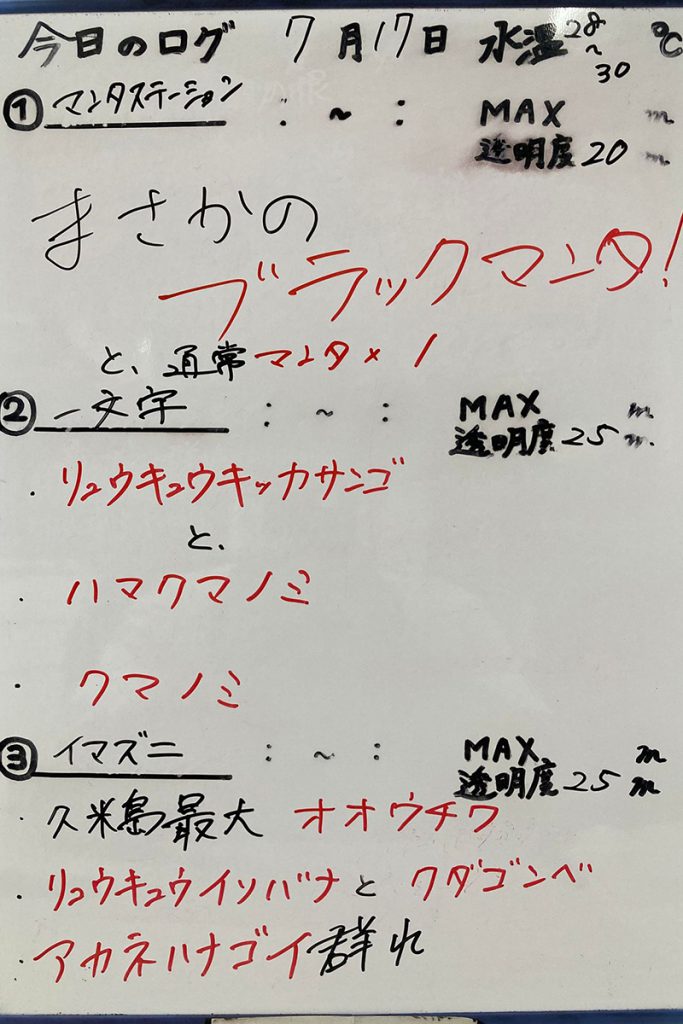 今日のログ 7月17日 水温28~30℃
① マンタステーション : ~ : MAX m
透明度20m
まさかの
ブラックマンタ!
と、通常マンタ×1
② 一文字 : ~ : MAX m
透明度25m
・リュウキュウキッカサンゴ
と、
・ハマクマノミ
・クマノミ
③ イマズニ : ~ : MAX m
透明度25m
・久米島最大 オオウチワ
・リュウキュウイソバナと クダゴンベ
・アカネハナゴイ群れ